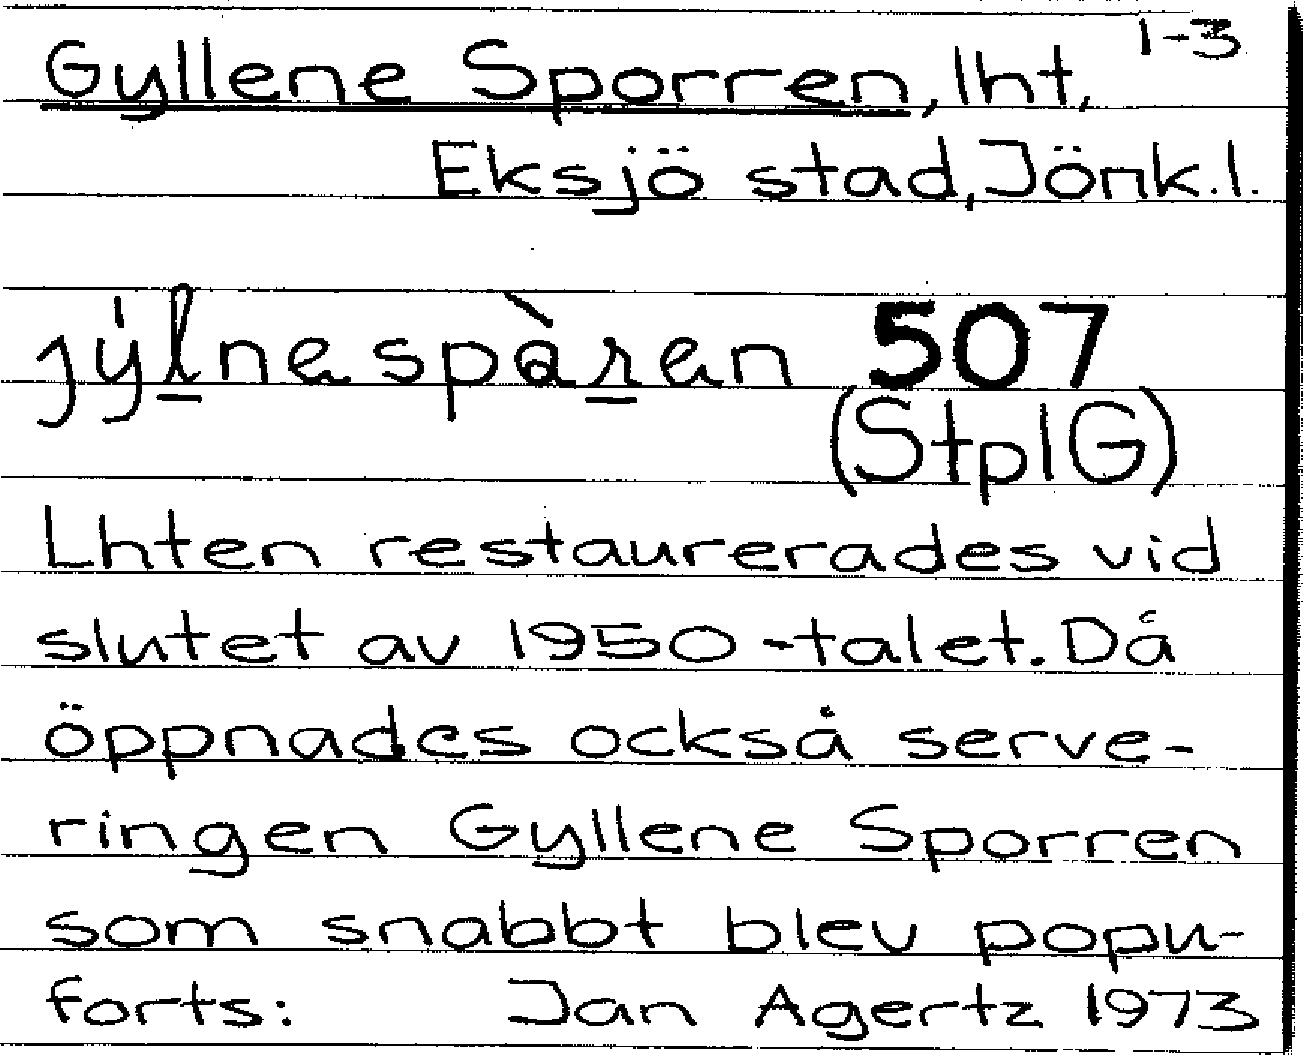 1-3
Gyllene Sporren, lht,
Eksjö stad, Jönk.l.
jýlnaspàren 507
(StplG)
Lhten restaurerades vid
slutet av 1950-talet. Då
öppnades också serve-
ringen Gyllene Sporren
som snabbt blev popu-
forts: Jan Agertz 1973